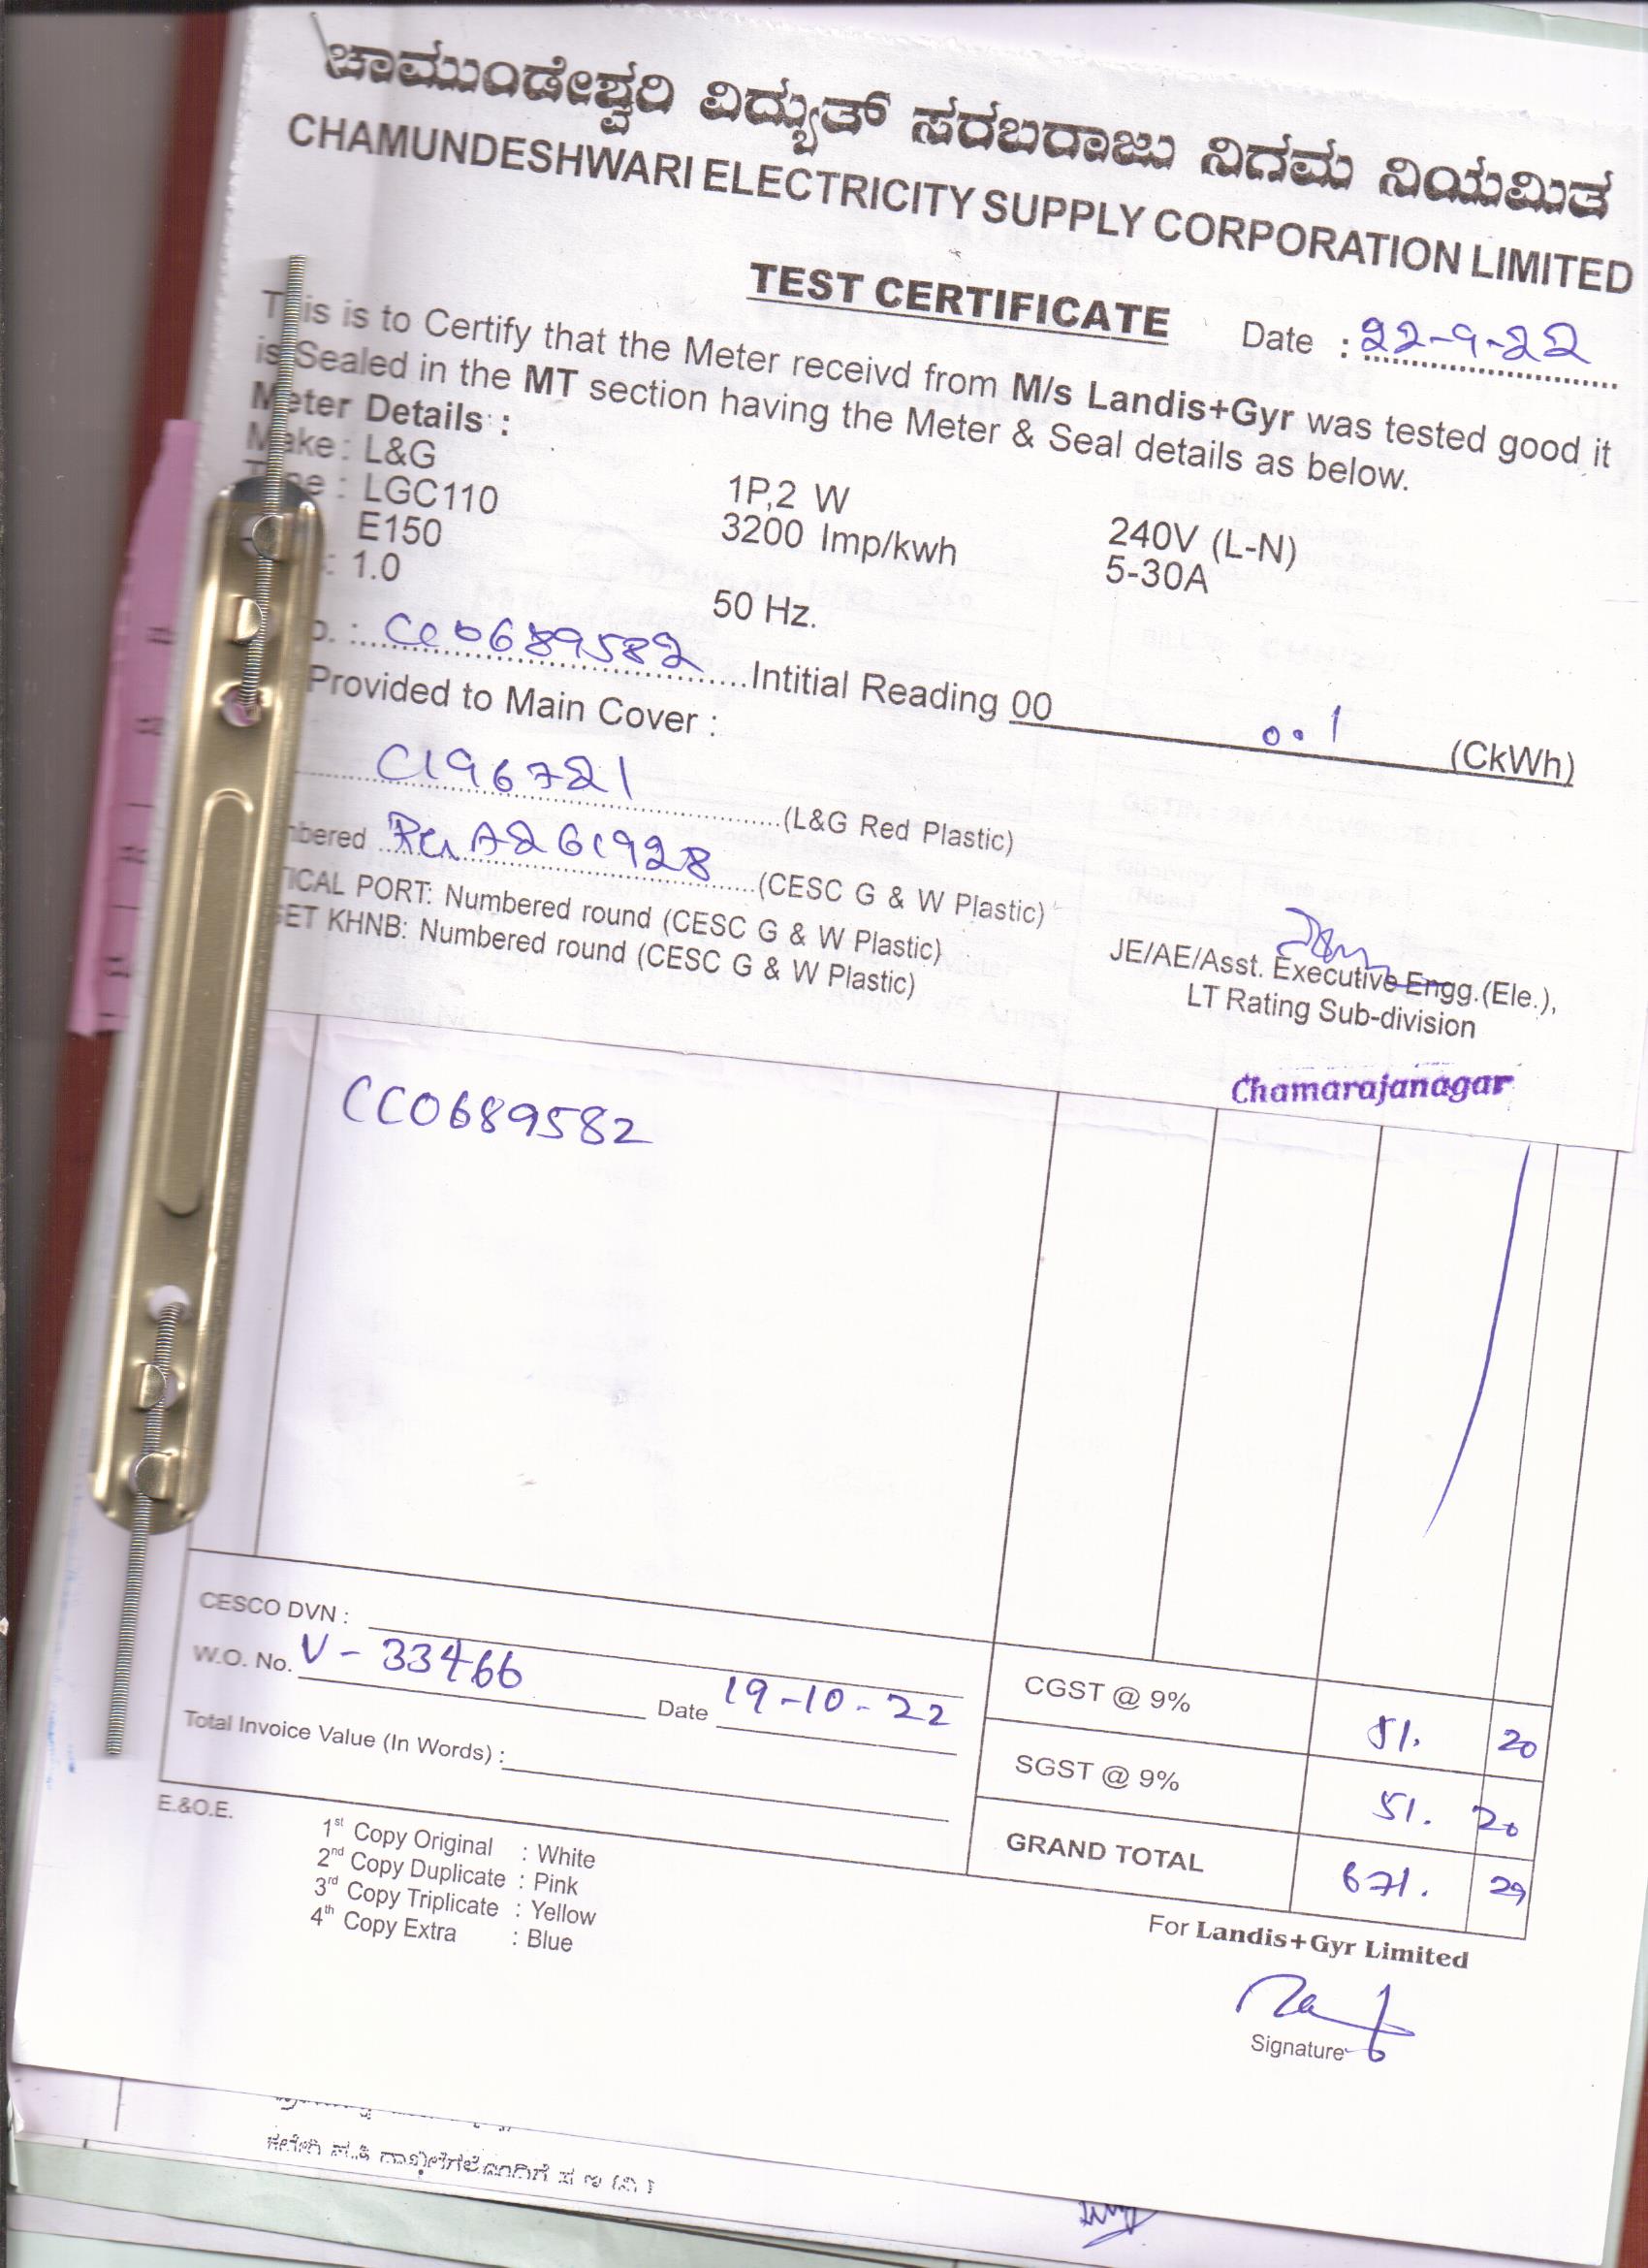 ಚಾಮುಂಡೇಶ್ವರಿ ವಿದ್ಯುತ್ ಸರಬರಾಜು ನಿಗಮ ನಿಯಮಿತ
CHAMUNDESHWARI ELECTRICITY SUPPLY CORPORATION LIMITED
TEST CERTIFICATE
Date : 22-9-22
This is to Certify that the Meter receivd from M/s Landis+Gyr was tested good it
is Sealed in the MT section having the Meter & Seal details as below.
Meter Details :
Make : L&G
: LGC110 1P,2 W 240V (L-N)
E150 3200 Imp/kwh 5-30A
: 1.0 50 Hz.
CC0689582 Intitial Reading 00 0.1 (CkWh)
Provided to Main Cover :
C196721 (L&G Red Plastic)
A261928 (CESC G & W Plastic)
PORT: Numbered round (CESC G & W Plastic)
KHNB: Numbered round (CESC G & W Plastic)
JE/AE/Asst. Executive Engg.(Ele.),
LT Rating Sub-division
Chamarajanagar
CC0689582
CESCO DVN :
W.O. No. V-33466 Date 19-10-22
Total Invoice Value (In Words) :
CGST @ 9% 51. 20
SGST @ 9% 51. 20
GRAND TOTAL 671. 29
E.&O.E.
1st Copy Original : White
2nd Copy Duplicate : Pink
3rd Copy Triplicate : Yellow
4th Copy Extra : Blue
For Landis+Gyr Limited
Signature